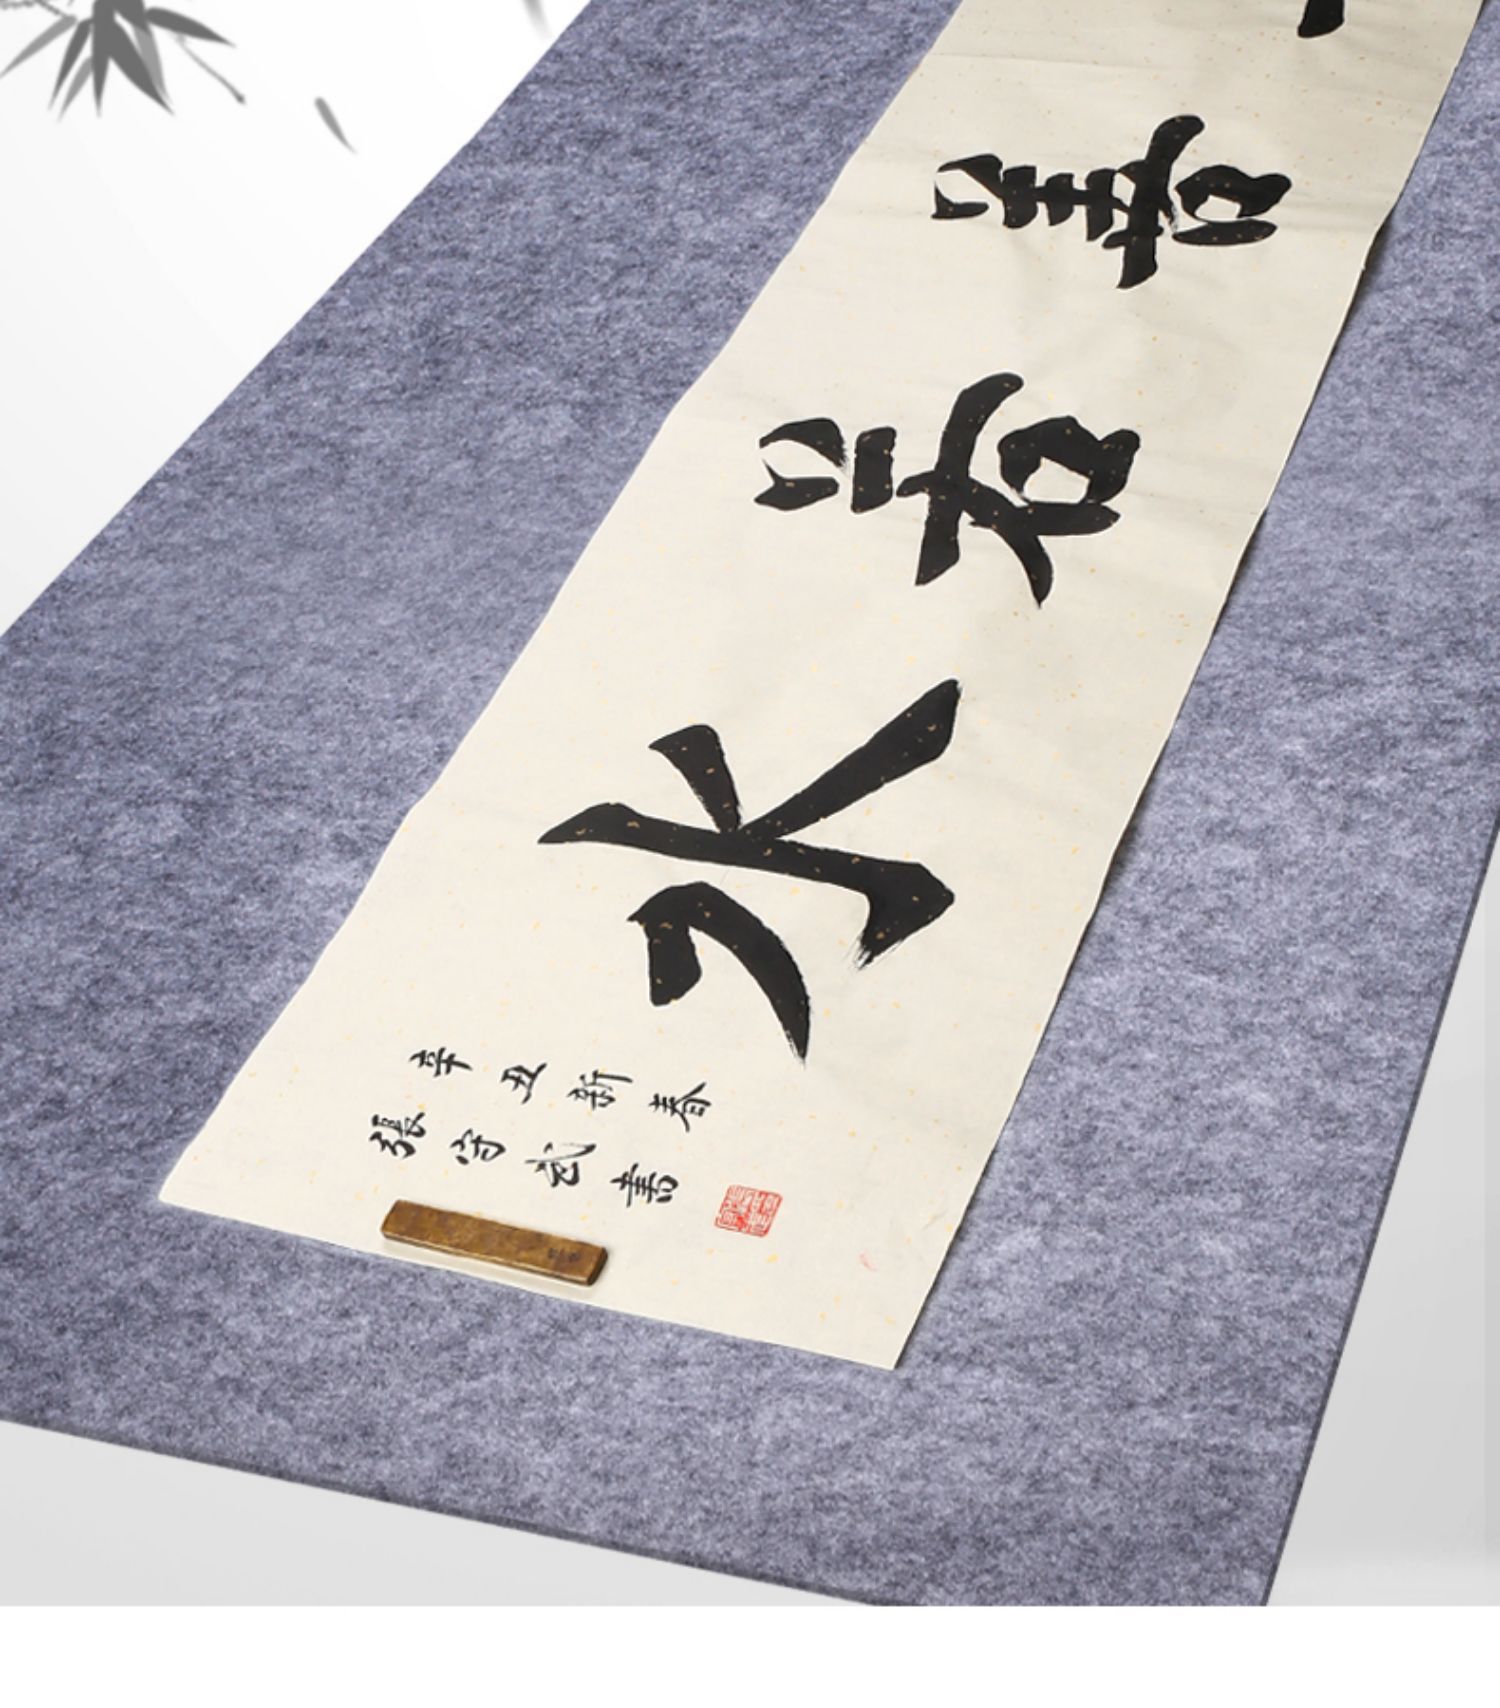 善若水
辛丑新春
張守武書